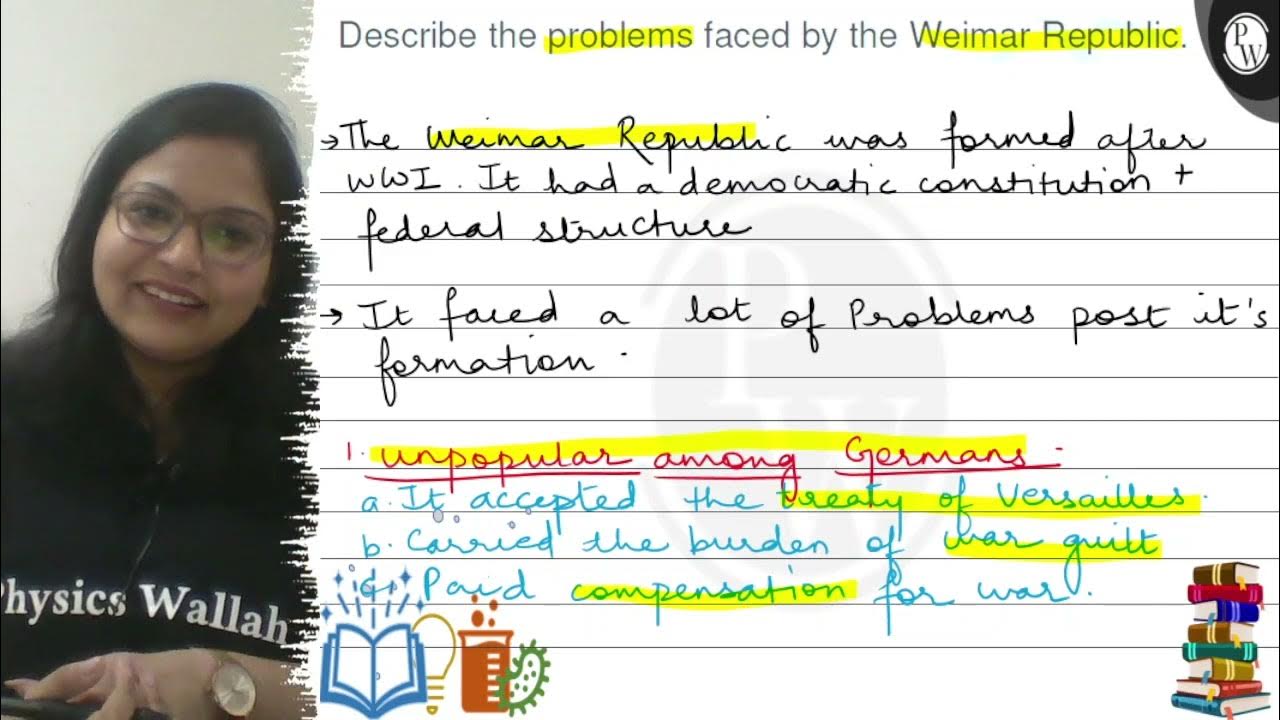 Describe the problems faced by the Weimar Republic.
PW
→ The Weimar Republic was formed after
WWI. It had a democratic constitution +
federal structure
→ It faced a lot of Problems post it's
formation.
1. unpopular among Germans.
a. It accepted the treaty of Versailles.
b. Carried the burden of war guilt
c. Paid compensation for war.
PW
Physics Wallah